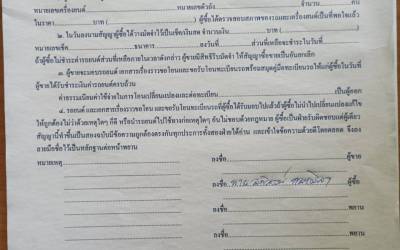 หมายเลขเครื่องยนต์ หมายเลขตัวถัง จำนวน คัน
ราคา บาท ( ) ผู้ซื้อได้ตรวจสอบสภาพของรถและเครื่องยนต์เป็นที่พอใจแล้ว
๒. ในวันลงนามสัญญาผู้ซื้อได้วางมัดจำไว้เป็นเช็ค/เงินสด จำนวนเงิน บาท ( )
หมายเลขเช็ค ธนาคาร ลงวันที่ ส่วนที่เหลือจะชำระในวันที่
ถ้าผู้ซื้อไม่ชำระค่ารถยนต์ส่วนที่เหลือภายในเวลาดังกล่าว ผู้ขายมีสิทธิริบมัดจำ ให้สัญญาซื้อขายเป็นอันยกเลิก
๓. ผู้ขายจะมอบรถยนต์ เอกสารเรื่องราวขอโอนและขอรับโอนทะเบียนรถพร้อมสมุดคู่มือทะเบียนรถให้แก่ผู้ซื้อในวันที่
ผู้ขายได้รับชำระเงินค่ารถยนต์ครบถ้วน
ค่าธรรมเนียมค่าใช้จ่ายในการโอนเปลี่ยนแปลงและต่อทะเบียน เป็นผู้ออก
๔. รถยนต์ และเอกสารเรื่องราวขอโอน และขอรับโอนทะเบียนรถที่ผู้ซื้อได้รับมอบไปแล้วถ้าผู้ซื้อไม่นำไปเปลี่ยนแปลงแก้ไข
ให้ถูกต้องไม่ว่าด้วยเหตุใดๆ ก็ดี หรือนำรถยนต์ไปใช้ทางก่อเหตุใดๆ อันไม่ชอบด้วยกฎหมาย ผู้ซื้อเป็นฝ่ายรับผิดชอบแต่ผู้เดียว
สัญญานี้ทำขึ้นเป็นสองฉบับมีข้อความถูกต้องตรงกันทุกประการทั้งสองฝ่ายได้อ่าน และเข้าใจข้อความด้วยดีโดยตลอด จึงลง
ลายมือชื่อไว้เป็นหลักฐานต่อหน้าพยาน
หมายเหตุ ลงชื่อ ผู้ขาย
ลงชื่อ ผู้ซื้อ
ลงชื่อ พยาน
ลงชื่อ พยาน